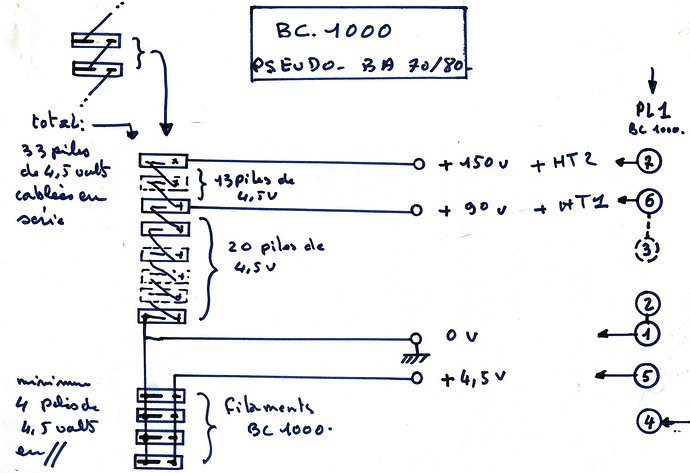 BC.1000
PSEUDO- BA 70/80-
total:
33 piles
de 4,5 volts
cablées en
série
13 piles de
4,5V
20 piles de
4,5V
+ 150 V + HT2
+ 90 V + HT1
0 V
+ 4,5V
PL1
BC 1000.
7
6
3
2
1
5
4
minimum
4 piles de
4,5 volts
en //
filaments
BC 1000.